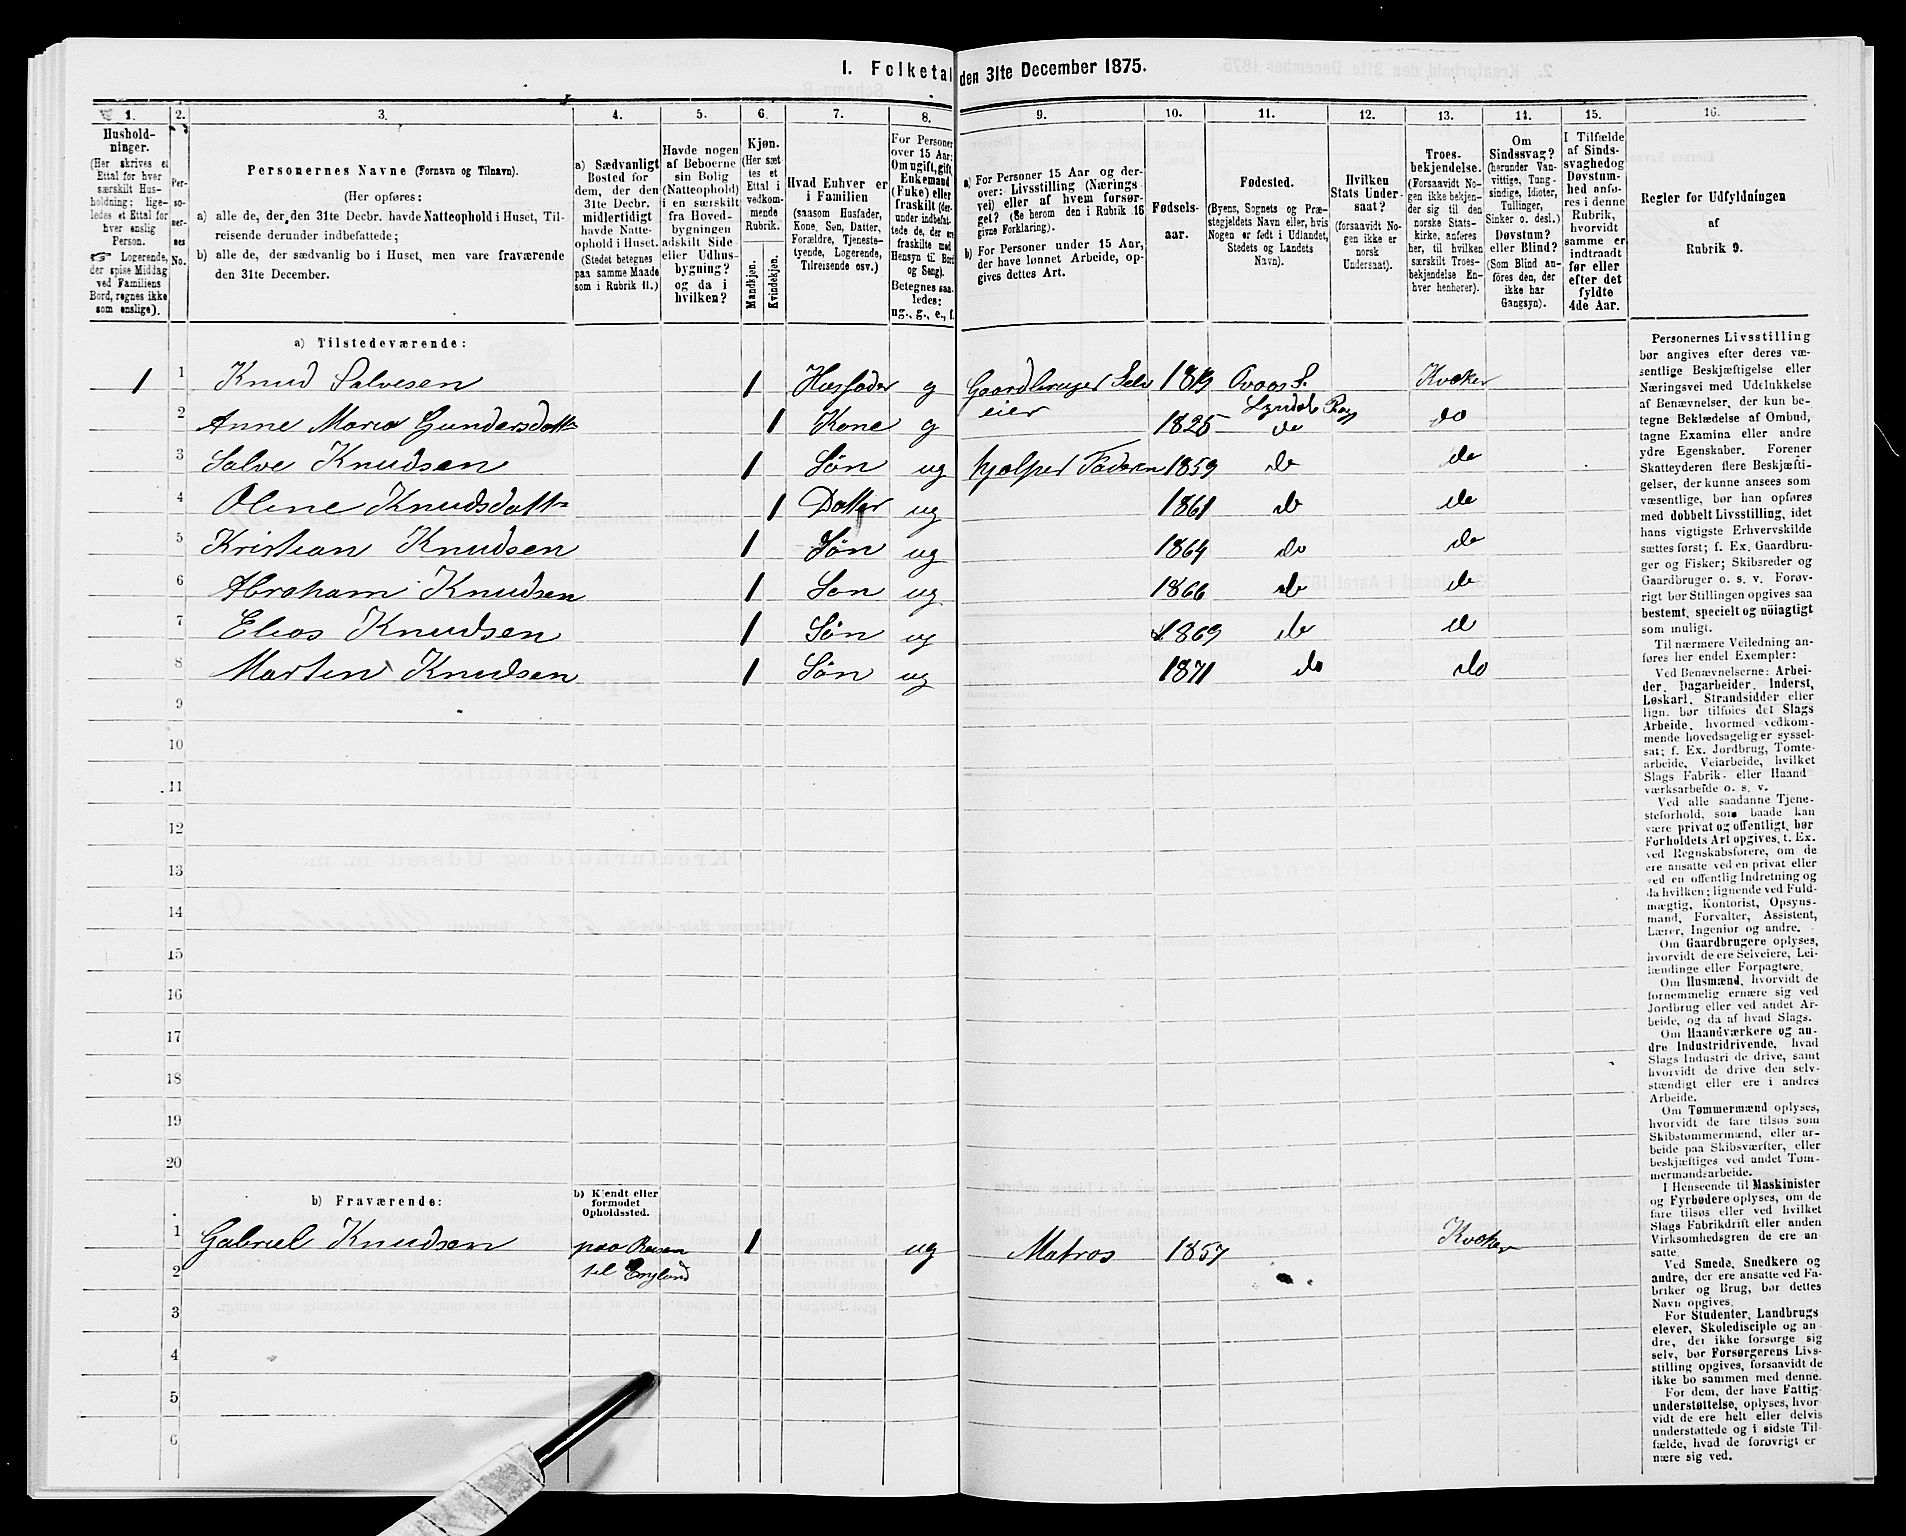 1. Folketal den 31te December 1875.
1. 2. 3. 4. 5. 6. 7. 8. 9. 10. 11. 12. 13. 14. 15. 16.
Hushold-
ninger.
(Her skrives et
Ettal for hver
særskilt Hus-
holdning; lige-
ledes et Ettal for
hver enslig
Person.
☞ Logerende,
der spise Middag
ved Familiens
Bord, regnes ikke
som enslige).
Per-
so-
ner-
nes
No.
Personernes Navne (Fornavn og Tilnavn).
(Her opføres:
a) alle de, der den 31te Decbr. havde Natteophold i Huset, Til-
reisende derunder indbefattede;
b) alle de, der sædvanlig bo i Huset, men vare fraværende
den 31te December.
a) Sædvanligt
Bosted for
dem, der den
31te Decbr.
midlertidigt
havde Natte-
ophold i Huset.
(Stedet betegnes
paa samme Maade
som i Rubrik 11.)
Havde nogen
af Beboerne
sin Bolig
(Natteophold)
i en særskilt
fra Hoved-
bygningen
adskilt Side-
eller Udhus-
bygning?
og da i
hvilken?
Kjøn.
(Her sæt-
tes et
Ettal i
vedkom-
mende
Rubrik.
Mandkjøn.
Kvindekjøn.
Hvad Enhver er
i Familien
(saasom Husfader,
Kone, Søn, Datter,
Forældre, Tjeneste-
tyende, Logerende,
Tilreisende osv.)
For Personer
over 15 Aar:
Om ugift, gift,
Enkemand
(Enke) eller
fraskilt (der-
under indbefat-
tede de, der ere
fraskilte med
Hensyn til Bord
og Seng).
Betegnes saa-
ledes:
ug., g., e., f.
a) For Personer 15 Aar og der-
over: Livsstilling (Nærings-
vei) eller af hvem forsør-
get? (Se herom den i Rubrik 16
givne Forklaring).
b) For Personer under 15 Aar,
der have lønnet Arbeide, op-
gives dettes Art.
Fødsels-
aar.
Fødested.
(Byens, Sognets og Præ-
stegjeldets Navn eller, hvis
Nogen er født i Udlandet,
Stedets og Landets
Navn).
Hvilken
Stats Under-
saat?
(forsaavidt No-
gen ikke er
norsk
Undersaat).
Troes-
bekjendelse.
(Forsaavidt No-
gen ikke bekjen-
der sig til den
norske Stats-
kirke, anføres
her, til hvilken
særskilt Troes-
bekjendelse En-
hver henhører).
Om
Sindssvag?
(herunder Van-
vittige, Tung-
sindige, Idioter,
Tullinger,
Sinker o. desl.)
Døvstum?
eller Blind?
(Som Blind an-
føres den, der
ikke har
Gangsyn).
I Tilfælde
af Sinds-
svaghed og
Døvstum-
hed anfø-
res i denne
Rubrik,
hvorvidt
samme er
indtraadt
før eller
efter det
fyldte
4de Aar.
Regler for Udfyldningen
af
Rubrik 9.
a) Tilstedeværende:
1 1 Knud Salvesen 1 Husfader g Gaardbruger Selv 1819 Kvæker
eier Lyndal
2 Anne Maria Gundersdattr 1 Kone g 1825 do do
3 Salve Knudsen 1 Søn ug hjælper Faderen 1859 do do
4 Oline Knudsdattr 1 Datter ug 1861 do do
5 Kristian Knudsen 1 Søn ug 1864 do do
6 Abraham Knudsen 1 Søn ug 1866 do do
7 Elias Knudsen 1 Søn ug 1869 do do
8 Marten Knudsen 1 Søn ug 1871 do do
9
10
11
12
13
14
15
16
17
18
19
20
b) Fraværende:
b) Kjendt eller
formodet
Opholdssted.
1 Gabriel Knudsen paa Reisen 1 ug Matros 1857 Kvæker
2 til England
3
4
5
6
Personernes Livsstilling
bør angives efter deres væ-
sentlige Beskjæftigelse eller
Næringsvei med Udelukkelse
af Benævnelser, der kun be-
tegne Beklædelse af Ombud,
tagne Examina eller andre
ydre Egenskaber. Forener
Skatteyderen flere Beskjæfti-
gelser, der kunne ansees som
væsentlige, bør han opføres
med dobbelt Livsstilling, idet
hans vigtigste Erhvervskilde
sættes først; f. Ex. Gaardbru-
ger og Fisker; Skibsreder og
Gaardbruger o. s. v. Forøv-
rigt bør Stillingen opgives saa
bestemt, specielt og nöiagtigt
som muligt.
Til nærmere Veiledning an-
føres her endel Exempler:
Ved Benævnelserne: Arbei-
der, Dagarbeider, Inderst,
Løskarl, Strandsidder eller
lign. bør tilføies det Slags
Arbeide, hvormed vedkom-
mende hovedsagelig er syssel-
sat; f. Ex. Jordbrug, Tomte-
arbeide, Veiarbeide, hvilket
Slags Fabrik- eller Haand
værksarbeide o. s. v.
Ved alle saadanne Tjene-
steforhold, som baade kan
være privat og offentligt, bør
Forholdets Art opgives, t. Ex.
ved Regnskabsførere, om de
ere ansatte ved en privat eller
ved en offentlig Indretning og
da hvilken; lignende ved Fuld-
mægtig, Kontorist, Opsyns-
mand, Forvalter, Assistent,
Lærer, Ingeniør og andre.
Om Gaardbrugere oplyses,
hvorvidt de ere Selveiere, Lei-
lændinge eller Forpagtere.
Om Husmænd, hvorvidt de
fornemmelig ernære sig ved
Jordbrug eller ved andet Ar-
beide, og da af hvad Slags.
Om Haandværkere og an-
dre Industridrivende, hvad
Slags Industri de drive, samt
hvorvidt de drive den selv-
stændigt eller ere i andres
Arbeide.
Om Tømmermænd oplyses,
hvorvidt de fare tilsøs som
Skibstømmermænd, eller ar-
beide paa Skibsværfter, eller
beskjæftiges ved andet Tøm-
mermandsarbeide.
I Henseende til Maskinister
og Fyrbødere oplyses, om de
fare tilsøs eller ved hvilket
Slags Fabrikdrift eller anden
Virksomhedsgren de ere an
satte.
Ved Smede, Snedkere og
andre, der ere ansatte ved Fa-
briker og Brug, bør dettes
Navn opgives.
For Studenter, Landbrugs
elever, Skoledisciple og an-
dre, der ikke forsørge sig
selv, bør Forsørgerens Livs-
stilling opgives, forsaavidt de
ikke bo sammen med denne.
For dem, der have Fattig-
understøttelse, oplyses, hvor-
vidt de ere helt eller delvis
understøttede og i sidste Til-
fælde, hvad de forøvrigt er
nære sig ved.